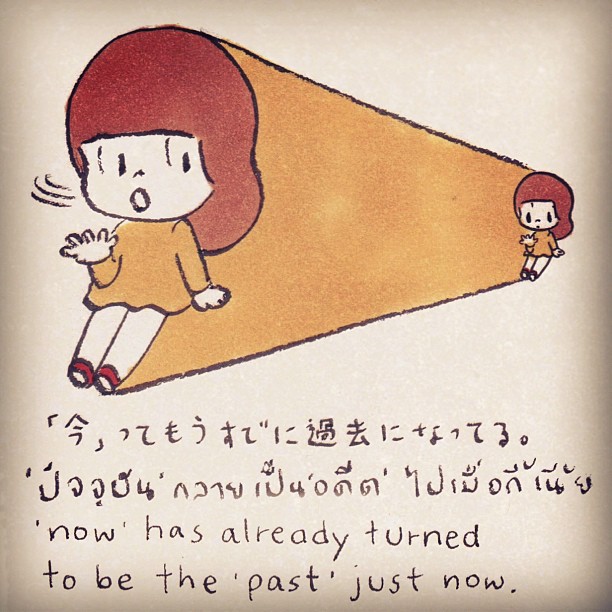 「今」ってもうすでに過去になってる。
'ปัจจุบัน' กลายเป็น 'อดีต' ไปเมื่อกี้นี้เนี้ย
'now' has already turned
to be the 'past' just now.